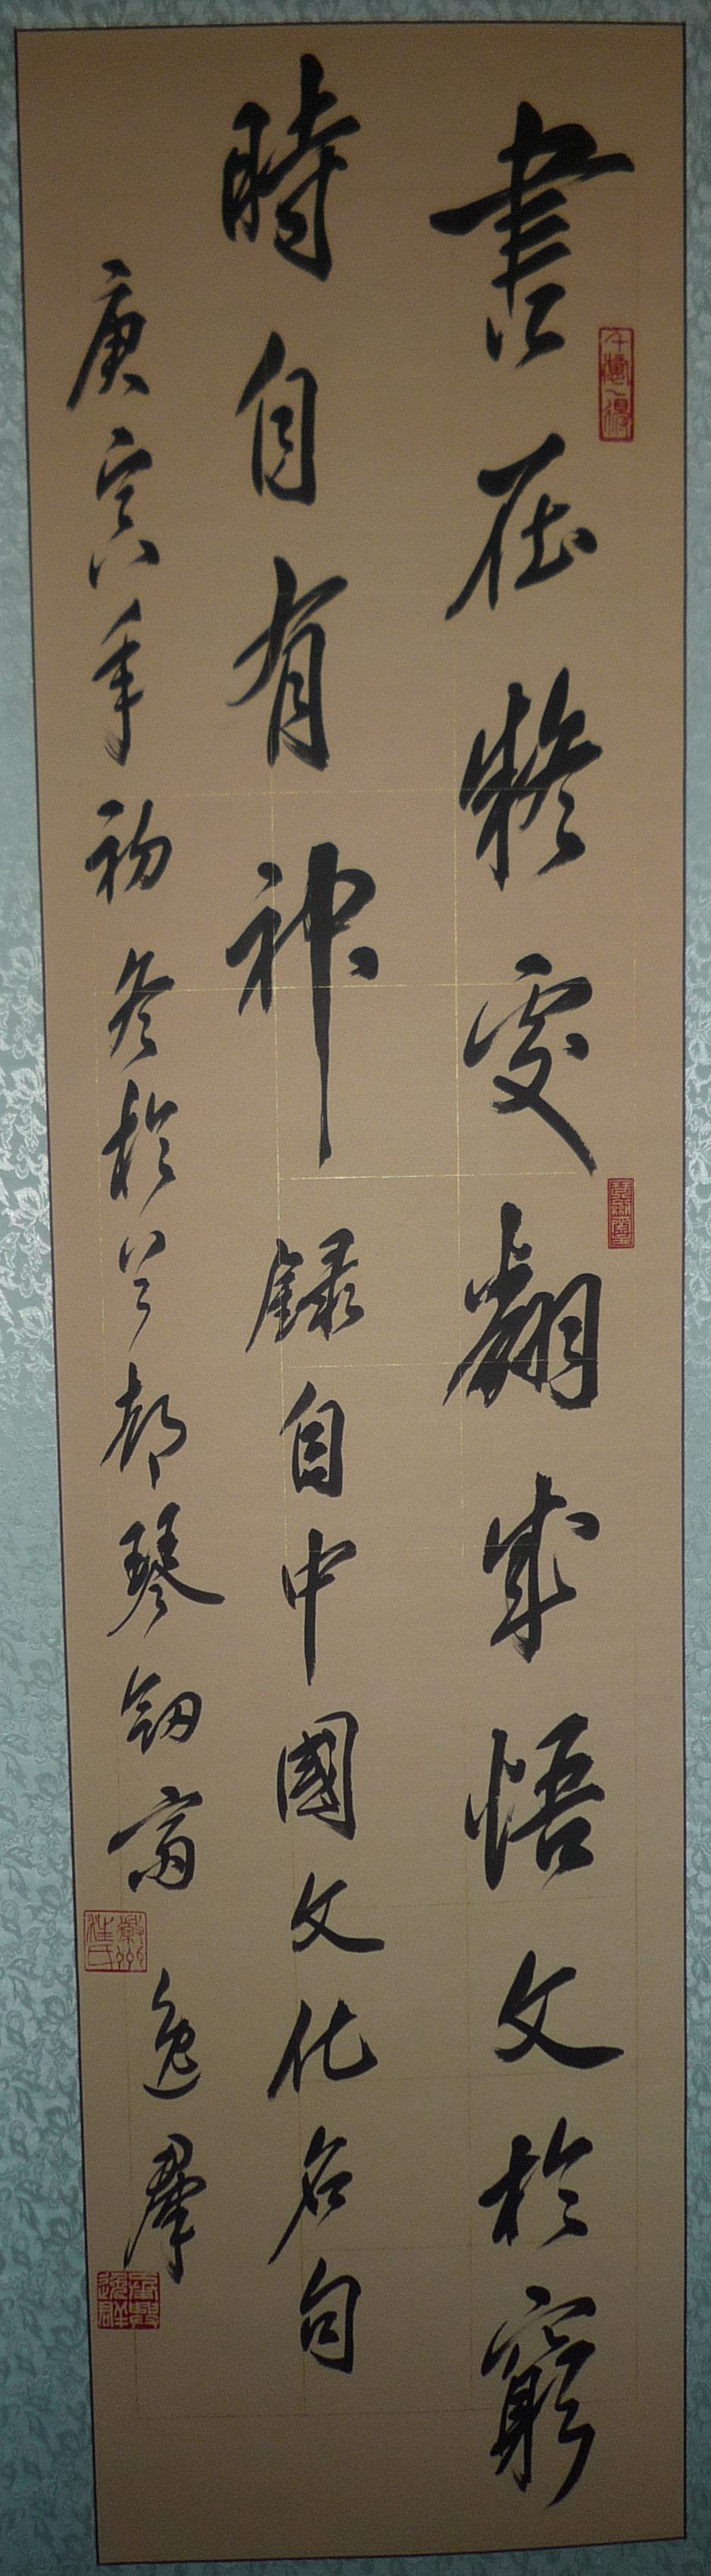 書在疑處翻成悟文於窮
時自有神錄自中國文化名句
庚寅年初冬於首都琴劍齋
逸羣